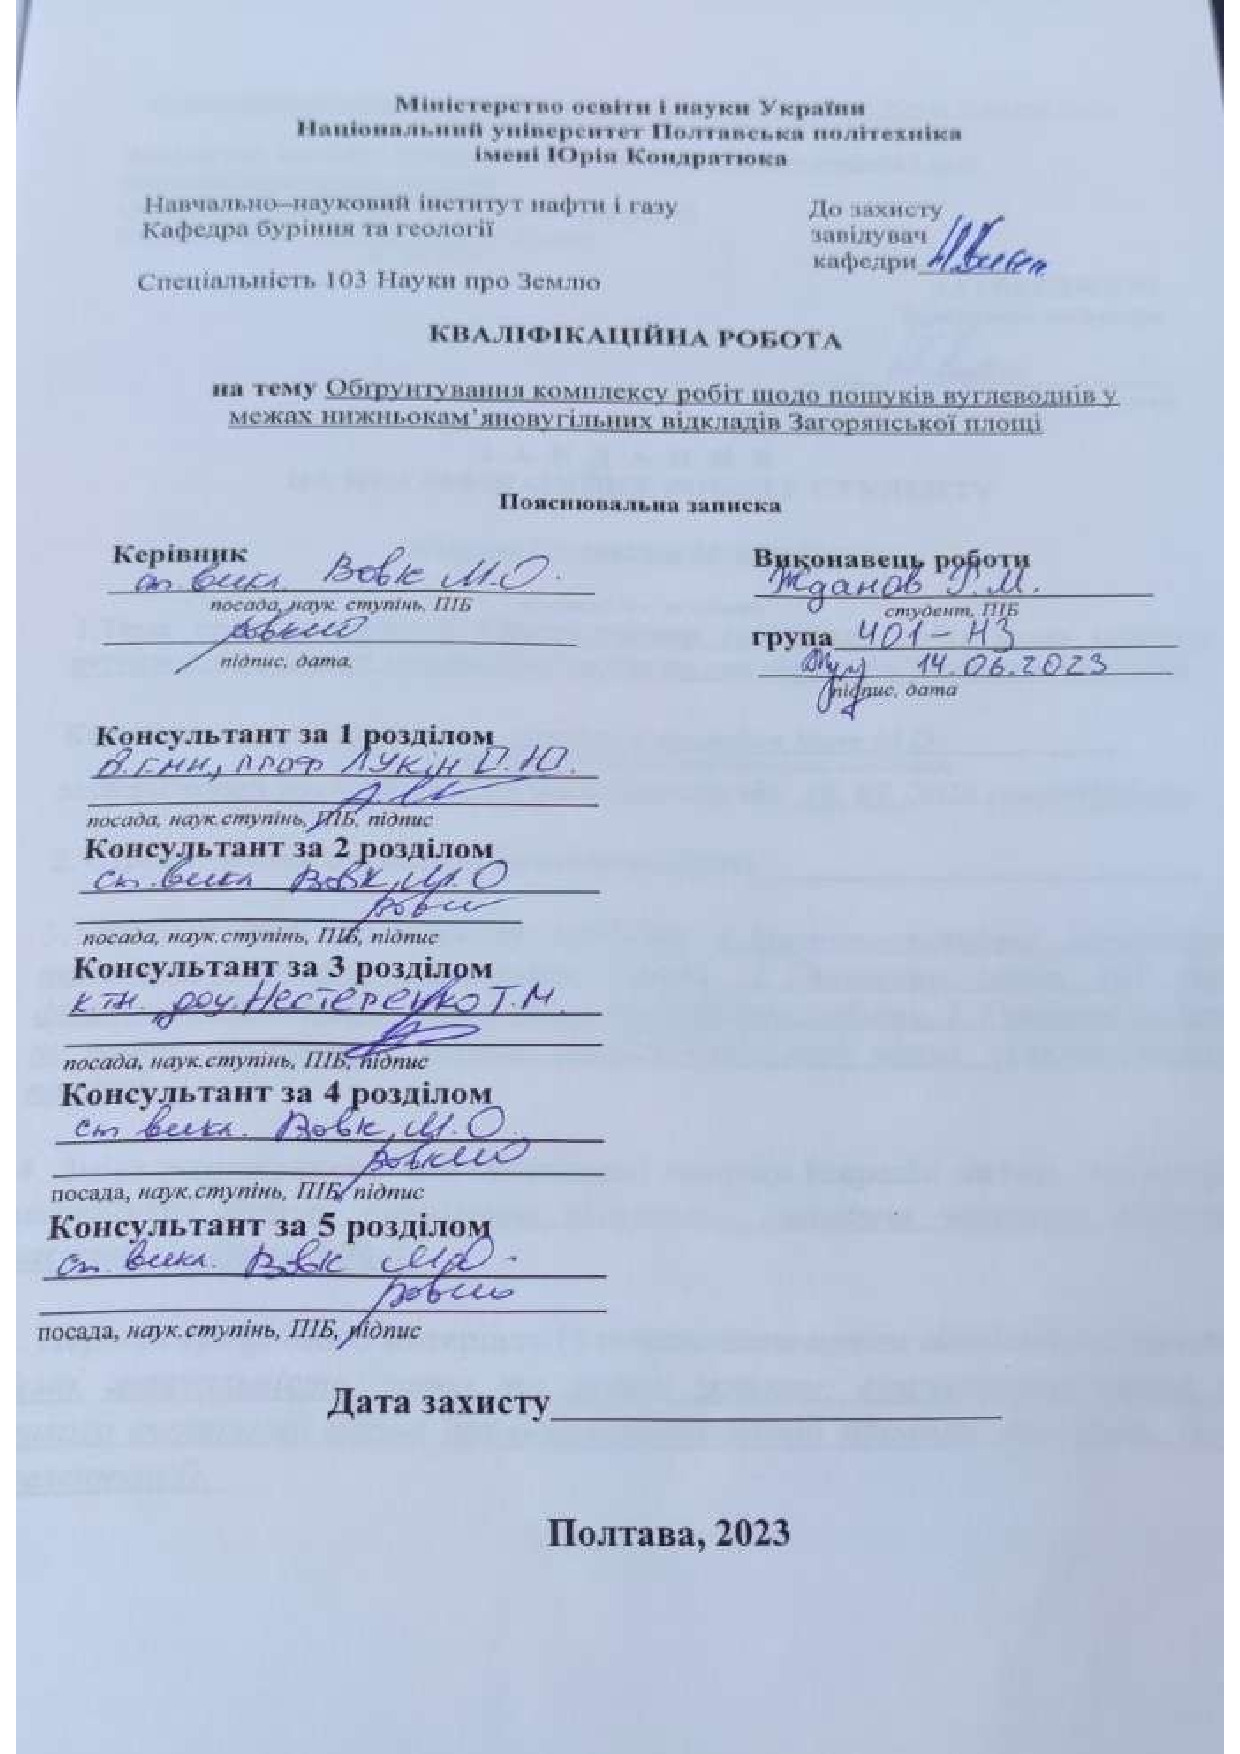 Міністерство освіти і науки України
Національний університет Полтавська політехніка
імені Юрія Кондратюка
Навчально–науковий інститут нафти і газу
Кафедра буріння та геології
До захисту
завідувач
кафедри
Спеціальність 103 Науки про Землю
КВАЛІФІКАЦІЙНА РОБОТА
на тему Обґрунтування комплексу робіт щодо пошуків вуглеводнів у
межах нижньокам’яновугільних відкладів Загорянської площі
Пояснювальна записка
Керівник
ст. викл. Вовк М.О.
посада, наук. ступінь, ПІБ
підпис, дата,
Виконавець роботи
Жданов
студент, ПІБ
група 401-НЗ
14.06.2023
підпис, дата
Консультант за 1 розділом
проф Лукін О.Ю.
посада, наук.ступінь, ПІБ, підпис
Консультант за 2 розділом
ст. викл Вовк М.О
посада, наук.ступінь, ПІБ, підпис
Консультант за 3 розділом
к.т.н. доц. Нестеренко Т.М.
посада, наук.ступінь, ПІБ, підпис
Консультант за 4 розділом
ст викл. Вовк М.О
посада, наук.ступінь, ПІБ, підпис
Консультант за 5 розділом
ст. викл. Вовк М.О.
посада, наук.ступінь, ПІБ, підпис
Дата захисту
Полтава, 2023